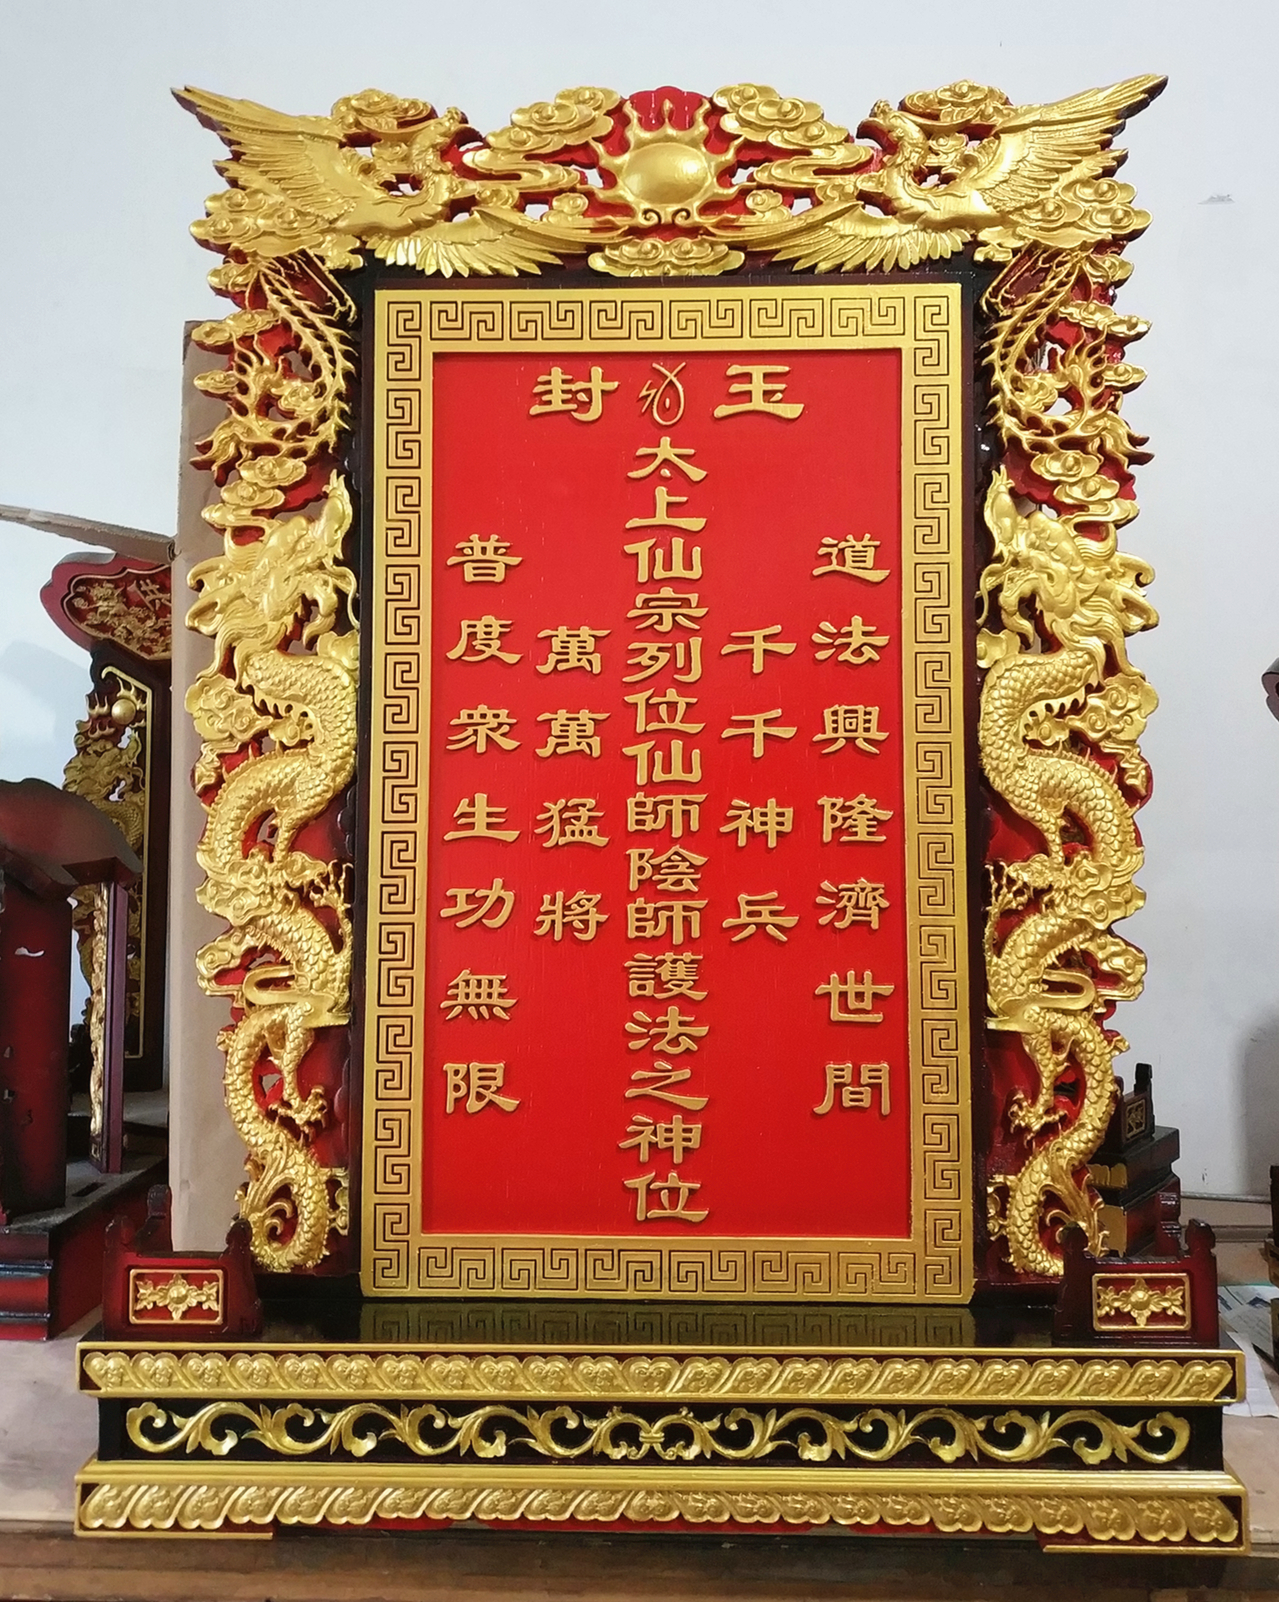 玉封
道法興隆濟世間
千千神兵
太上仙宗列位仙師陰師護法之神位
萬萬猛將
普度衆生功無限